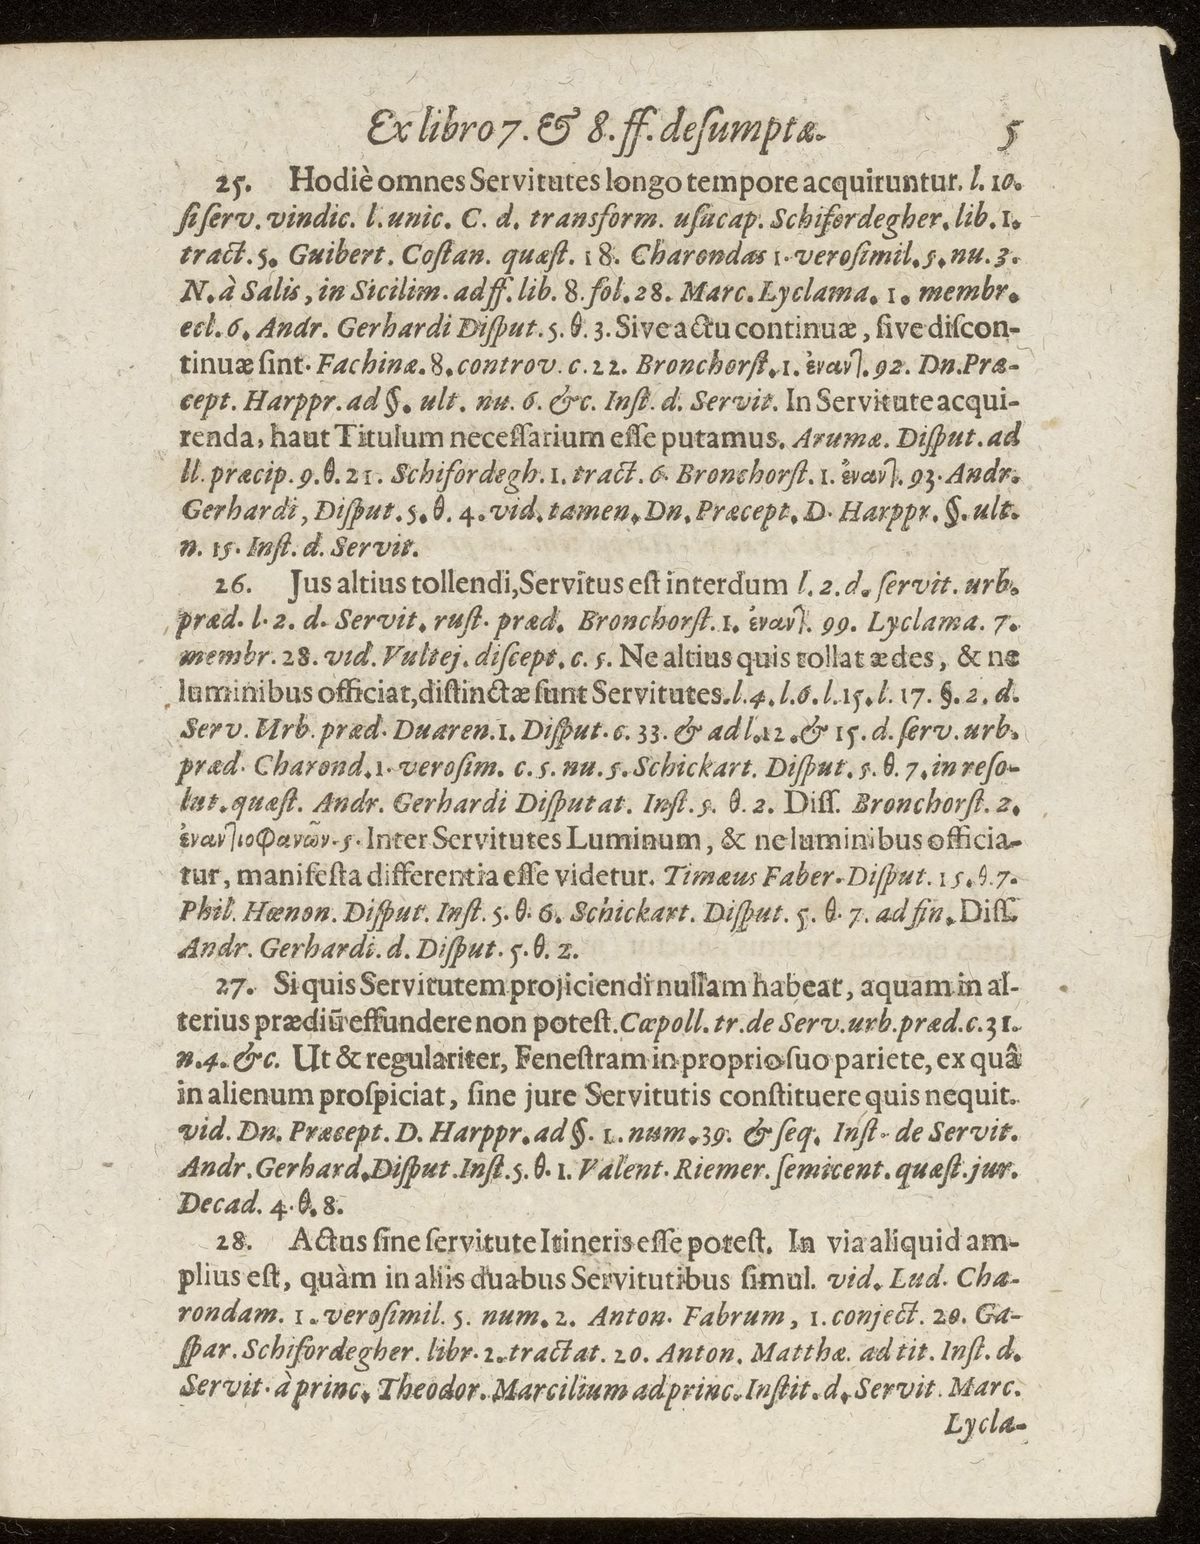 Ex libro 7. & 8. ff. deſumptæ. 5
25. Hodiè omnes Servitutes longo tempore acquiruntur. l. 10.
ſi ſerv. vindic. l. unic. C. d. transform. uſucap. Schifordegher. lib. 1.
tract. 5. Guibert. Coſtan. quæſt. 18. Charondas 1. veroſimil. 5. nu. 3.
N. à Salis, in Sicilim. ad ff. lib. 8. fol. 28. Marc. Lyclama. 1. membr.
ecl. 6. Andr. Gerhardi Diſput. 5. θ. 3. Sive actu continuæ, ſive diſcon-
tinuæ ſint. Fachinæ. 8. controv. c. 22. Bronchorſt. 1. ἐναντ. 92. Dn. Præ-
cept. Harppr. ad §. ult. nu. 6. &c. Inſt. d. Servit. In Servitute acqui-
renda, haut Titulum neceſſarium eſſe putamus. Arumæ. Diſput. ad
ll. præcip. 9. θ. 21. Schifordegh. 1. tract. 6. Bronchorſt. 1. ἐναντ. 93. Andr.
Gerhardi, Diſput. 5. θ. 4. vid. tamen. Dn. Præcept. D. Harppr. §. ult.
n. 15. Inſt. d. Servit.
26. Jus altius tollendi, Servitus eſt interdum l. 2. d. ſervit. urb.
præd. l. 2. d. Servit. ruſt. præd. Bronchorſt. 1. ἐναντ. 99. Lyclama. 7.
membr. 28. vid. Vultej. diſcept. c. 5. Ne altius quis tollat ædes, & ne
luminibus officiat, diſtinctæ ſunt Servitutes. l. 4. l. 6. l. 15. l. 17. §. 2. d.
Serv. Urb. præd. Duaren. 1. Diſput. c. 33. & ad l. 12. & 15. d. ſerv. urb.
præd. Charond. 1. veroſim. c. 5. nu. 5. Schickart. Diſput. 5. θ. 7. in reſo-
lut. quæſt. Andr. Gerhardi Diſputat. Inſt. 5. θ. 2. Diſſ. Bronchorſt. 2.
ἐναντιοφανῶν. 5. Inter Servitutes Luminum, & ne luminibus officia-
tur, manifeſta differentia eſſe videtur. Timæus Faber. Diſput. 15. θ. 7.
Phil. Hœnon. Diſput. Inſt. 5. θ. 6. Schickart. Diſput. 5. θ. 7. ad fin. Diſſ.
Andr. Gerhardi. d. Diſput. 5. θ. 2.
27. Si quis Servitutem projiciendi nullam habeat, aquam in al-
terius prædiũ effundere non poteſt. Cæpoll. tr. de Serv. urb. præd. c. 31.
n. 4. &c. Ut & regulariter, Feneſtram in proprio ſuo pariete, ex quâ
in alienum proſpiciat, ſine jure Servitutis conſtituere quis nequit.
vid. Dn. Præcept. D. Harppr. ad §. 1. num. 39. & ſeq. Inſt. de Servit.
Andr. Gerhard. Diſput. Inſt. 5. θ. 1. Valent. Riemer. ſemicent. quæſt. jur.
Decad. 4. θ. 8.
28. Actus ſine ſervitute Itineris eſſe poteſt. In via aliquid am-
plius eſt, quàm in aliis duabus Servitutibus ſimul. vid. Lud. Cha-
rondam. 1. veroſimil. 5. num. 2. Anton. Fabrum, 1. conject. 20. Ga-
ſpar. Schifordegher. libr. 2. tractat. 20. Anton. Matthæ. ad tit. Inſt. d.
Servit. à princ. Theodor. Marcilium ad princ. Inſtit. d. Servit. Marc.
Lycla-